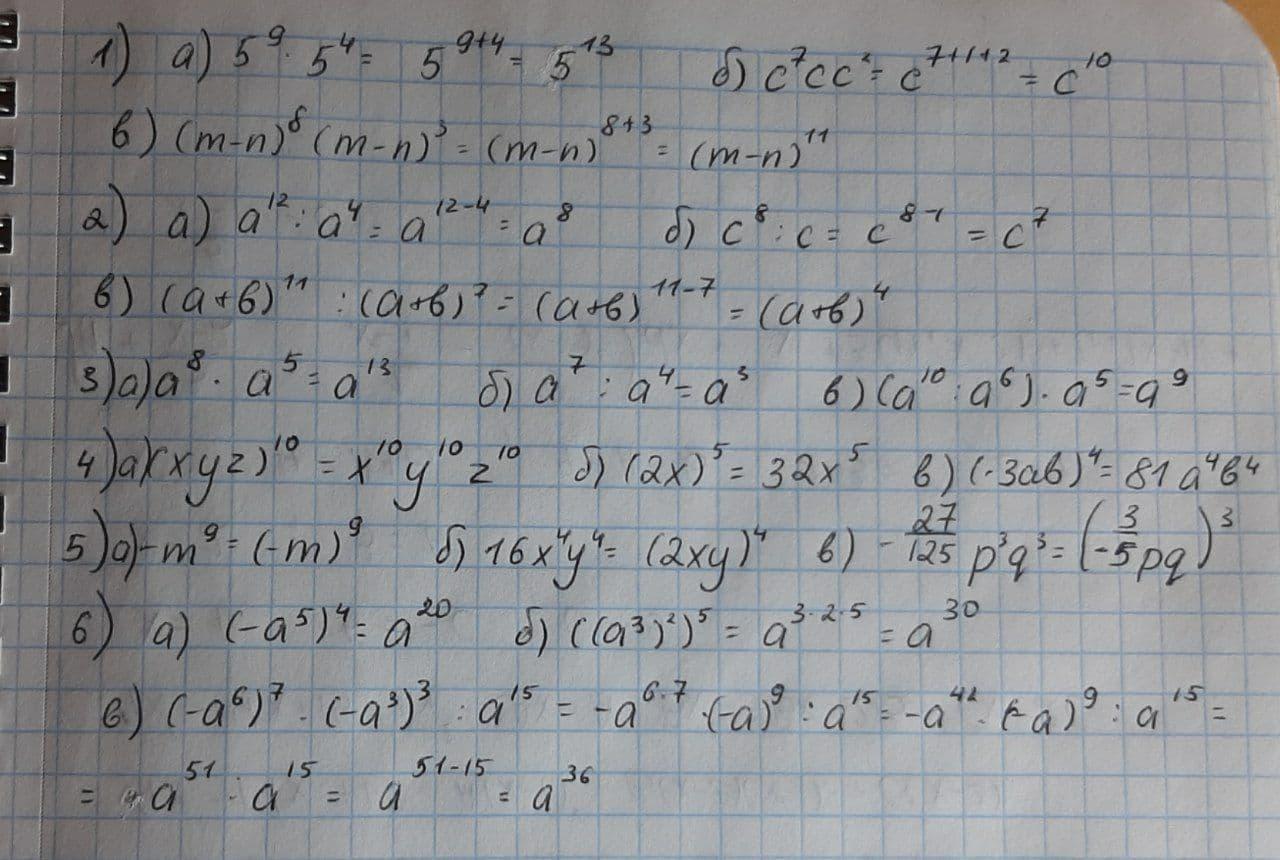 1) а) 5⁹ · 5⁴ = 5⁹⁺⁴ = 5¹³ б) c⁷cc² = c⁷⁺¹⁺² = c¹⁰
в) (m-n)⁸ (m-n)³ = (m-n)⁸⁺³ = (m-n)¹¹
2) а) a¹² : a⁴ = a¹²⁻⁴ = a⁸ б) c⁸ : c = c⁸⁻¹ = c⁷
в) (a+b)¹¹ : (a+b)⁷ = (a+b)¹¹⁻⁷ = (a+b)⁴
3) а) a⁸ · a⁵ = a¹³ б) a⁷ : a⁴ = a³ в) (a¹⁰ : a⁶) · a⁵ = a⁹
4) а) (xyz)¹⁰ = x¹⁰y¹⁰z¹⁰ б) (2x)⁵ = 32x⁵ в) (-3ab)⁴ = 81a⁴b⁴
5) а) -m⁹ = (-m)⁹ б) 16x⁴y⁴ = (2xy)⁴ в) -27/125 p³q³ = (-3/5 pq)³
6) а) (-a⁵)⁴ = a²⁰ б) ((a³)²)⁵ = a^(3·2·5) = a³⁰
в) (-a⁶)⁷ · (-a³)³ : a¹⁵ = -a^(6·7) · (-a)⁹ : a¹⁵ = -a⁴² · (-a)⁹ : a¹⁵ =
= a⁵¹ : a¹⁵ = a⁵¹⁻¹⁵ = a³⁶